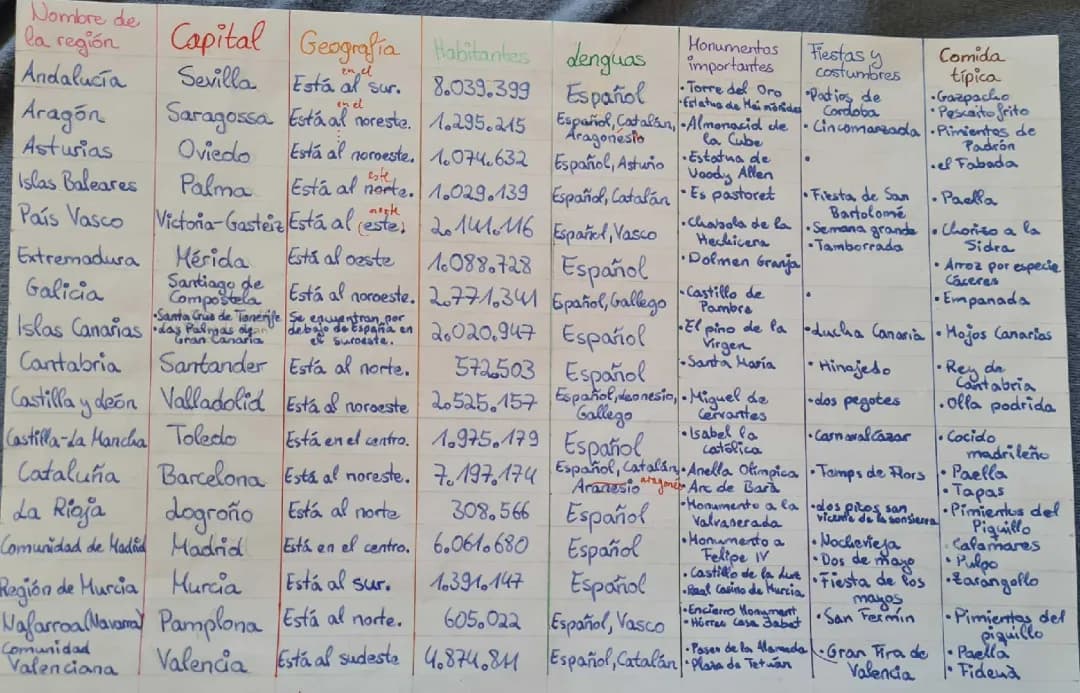 Nombre de la región Capital Geografía Habitantes Lenguas Monumentos importantes Fiestas y costumbres Comida típica
Andalucía Sevilla Está en el al sur. 8.039.399 Español • Torre del Oro • Estatua de Maimónides • Patios de Cordoba • Gazpacho • Pescaito frito
Aragón Saragossa Está en el al noreste. 1.295.215 Español, Catalán, Aragonésio • Almonacid de la Cube • Cincomarzada • Pimientos de Padrón
Asturias Oviedo Está al noroeste. 1.074.632 Español, Asturio • Estatua de Woody Allen • • el Fabada
Islas Baleares Palma Está al norte. este 1.029.139 Español, Catalán • Es pastoret • Fiesta de San Bartolomé • Paella
País Vasco Victoria-Gasteiz Está al (este. norte 2.141.116 Español, Vasco • Chabola de la Hechicera • Semana grande • Tamborrada • Chorizo a la Sidra
Extremadura Mérida Está al oeste 1.088.728 Español • Dolmen Granja • Arroz por especie Cáceres
Galicia Santiago de Compostela Está al noroeste. 2.771.341 Español, Gallego • Castillo de Pambre • • Empanada
Islas Canarias • Santa Crus de Tenerife • Las Palmas de Gran Canaria Se enquentran por debajo de España en el suroeste. 2.020.947 Español • El pino de la Virgen • Lucha Canaria • Mojos Canarias
Cantabria Santander Está al norte. 572.503 Español • Santa María • Hinojedo • Rey de Cantabria
Castilla y León Valladolid Está al noroeste 2.525.157 Español, Leonesio, Gallego • Miguel de Cervantes • Los pegotes • Olla podrida
Castilla-La Mancha Toledo Está en el centro. 1.975.179 Español • Isabel la católica • Carnavalcazar • Cocido madrileño
Cataluña Barcelona Está al noreste. 7.197.174 Español, Catalán, Aranesio aragones • Anella Olímpica • Arc de Barà • Temps de Flors • Paella • Tapas
La Rioja Logroño Está al norte 308.566 Español • Monumento a la Valvanerada • Los picos san vicente de la sonsierra • Pimientos del Piquillo
Comunidad de Madrid Madrid Está en el centro. 6.061.680 Español • Monumento a Felipe IV • Nochevieja • Dos de mayo • Calamares • Pulpo
Región de Murcia Murcia Está al sur. 1.391.147 Español • Castillo de la Luz • Real Casino de Murcia • Fiesta de los mayos • Zarangollo
Nafarroa (Navarra) Pamplona Está al norte. 605.022 Español, Vasco • Encierro Monument • Hórreo Casa Jabat • San Fermín • Pimientos del piquillo
Comunidad Valenciana Valencia Está al sudeste 4.874.811 Español, Catalán • Paseo de la Alameda • Plaza de Tetuán • Gran Fira de Valencia • Paella • Fideuà